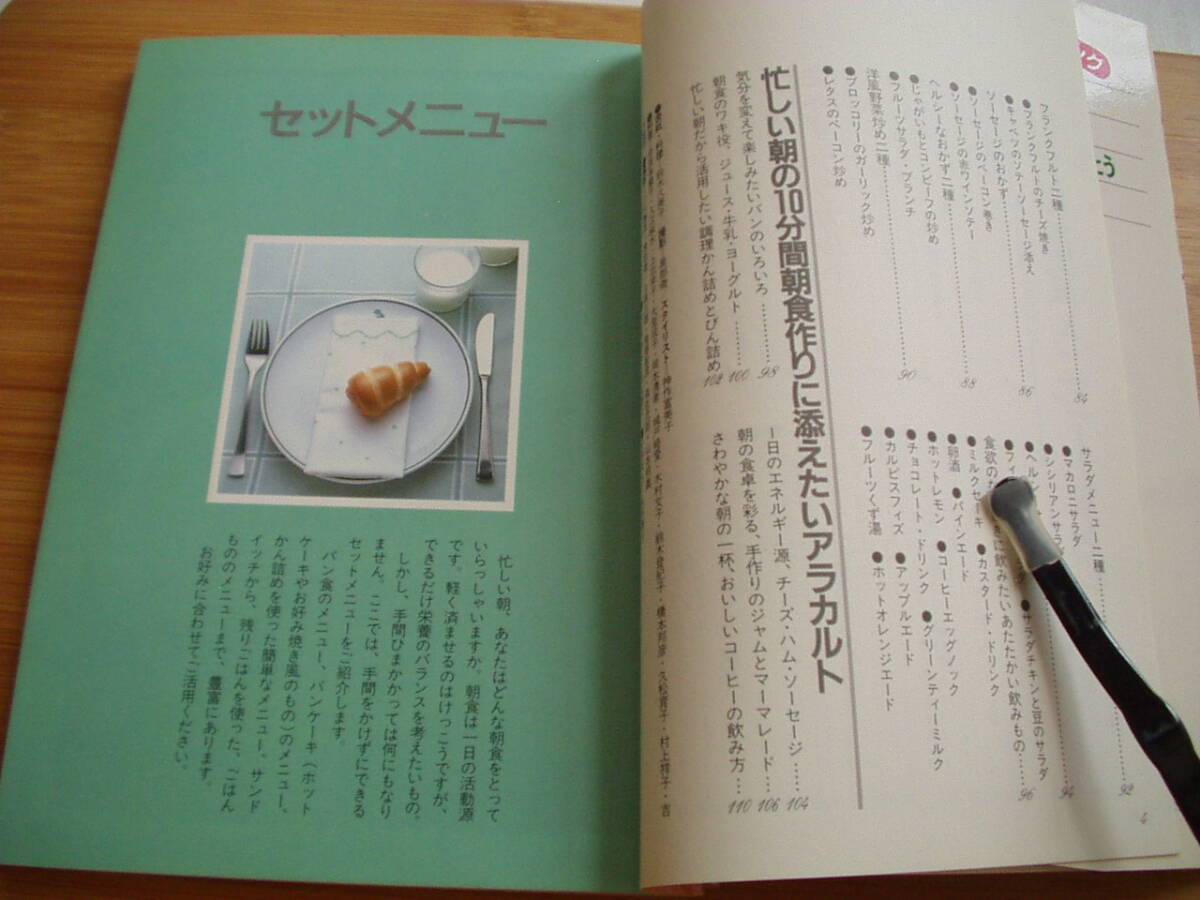 フランクフルト二種…………84
●フランクフルトのチーズ焼き
●キャベツのソテーソーセージ添え
ソーセージのおかず…………86
●ソーセージのベーコン巻き
●ソーセージの赤ワインソテー
ヘルシーなおかず二種…………88
●じゃがいもとコンビーフの炒め
●フルーツサラダ・ブランチ
洋風野菜炒め二種…………90
●ブロッコリーのガーリック炒め
●レタスのベーコン炒め
サラダメニュー二種…………92
●マカロニサラダ
●シシリアンサラダ
94
●サラダチキンと豆のサラダ
きに飲みたいあたたかい飲みもの……96
●ミルクセーキ ●カスタード・ドリンク
●卵酒 ●パインエード
●ホットレモン ●コーヒーエッグノック
●チョコレート・ドリンク ●グリーンティーミルク
●カルピスフィズ ●アップルエード
●フルーツくず湯 ●ホットオレンジエード
忙しい朝の10分間朝食作りに添えたいアラカルト
気分を変えて楽しみたいパンのいろいろ………98
朝食のワキ役、ジュース・牛乳・ヨーグルト………100
忙しい朝だから活用したい調理かん詰めとびん詰め 102
一日のエネルギー源、チーズ・ハム・ソーセージ……104
朝の食卓を彩る、手作りのジャムとマーマレード……106
さわやかな朝の一杯、おいしいコーヒーの飲み方……110
4
セットメニュー
忙しい朝、あなたはどんな朝食をとって
いらっしゃいますか。朝食は一日の活動源
です。軽く済ませるのはけっこうですが、
できるだけ栄養のバランスを考えたいもの。
しかし、手間ひまかかっては何にもなり
ません。ここでは、手間をかけずにできる
セットメニューをご紹介します。
パン食のメニュー、パンケーキ(ホット
ケーキやお好み焼き風のもの)のメニュー、
かん詰めを使った簡単なメニュー、サンド
イッチから、残りごはんを使った、ごはん
もののメニューまで、豊富にあります。
お好みに合わせてご活用ください。